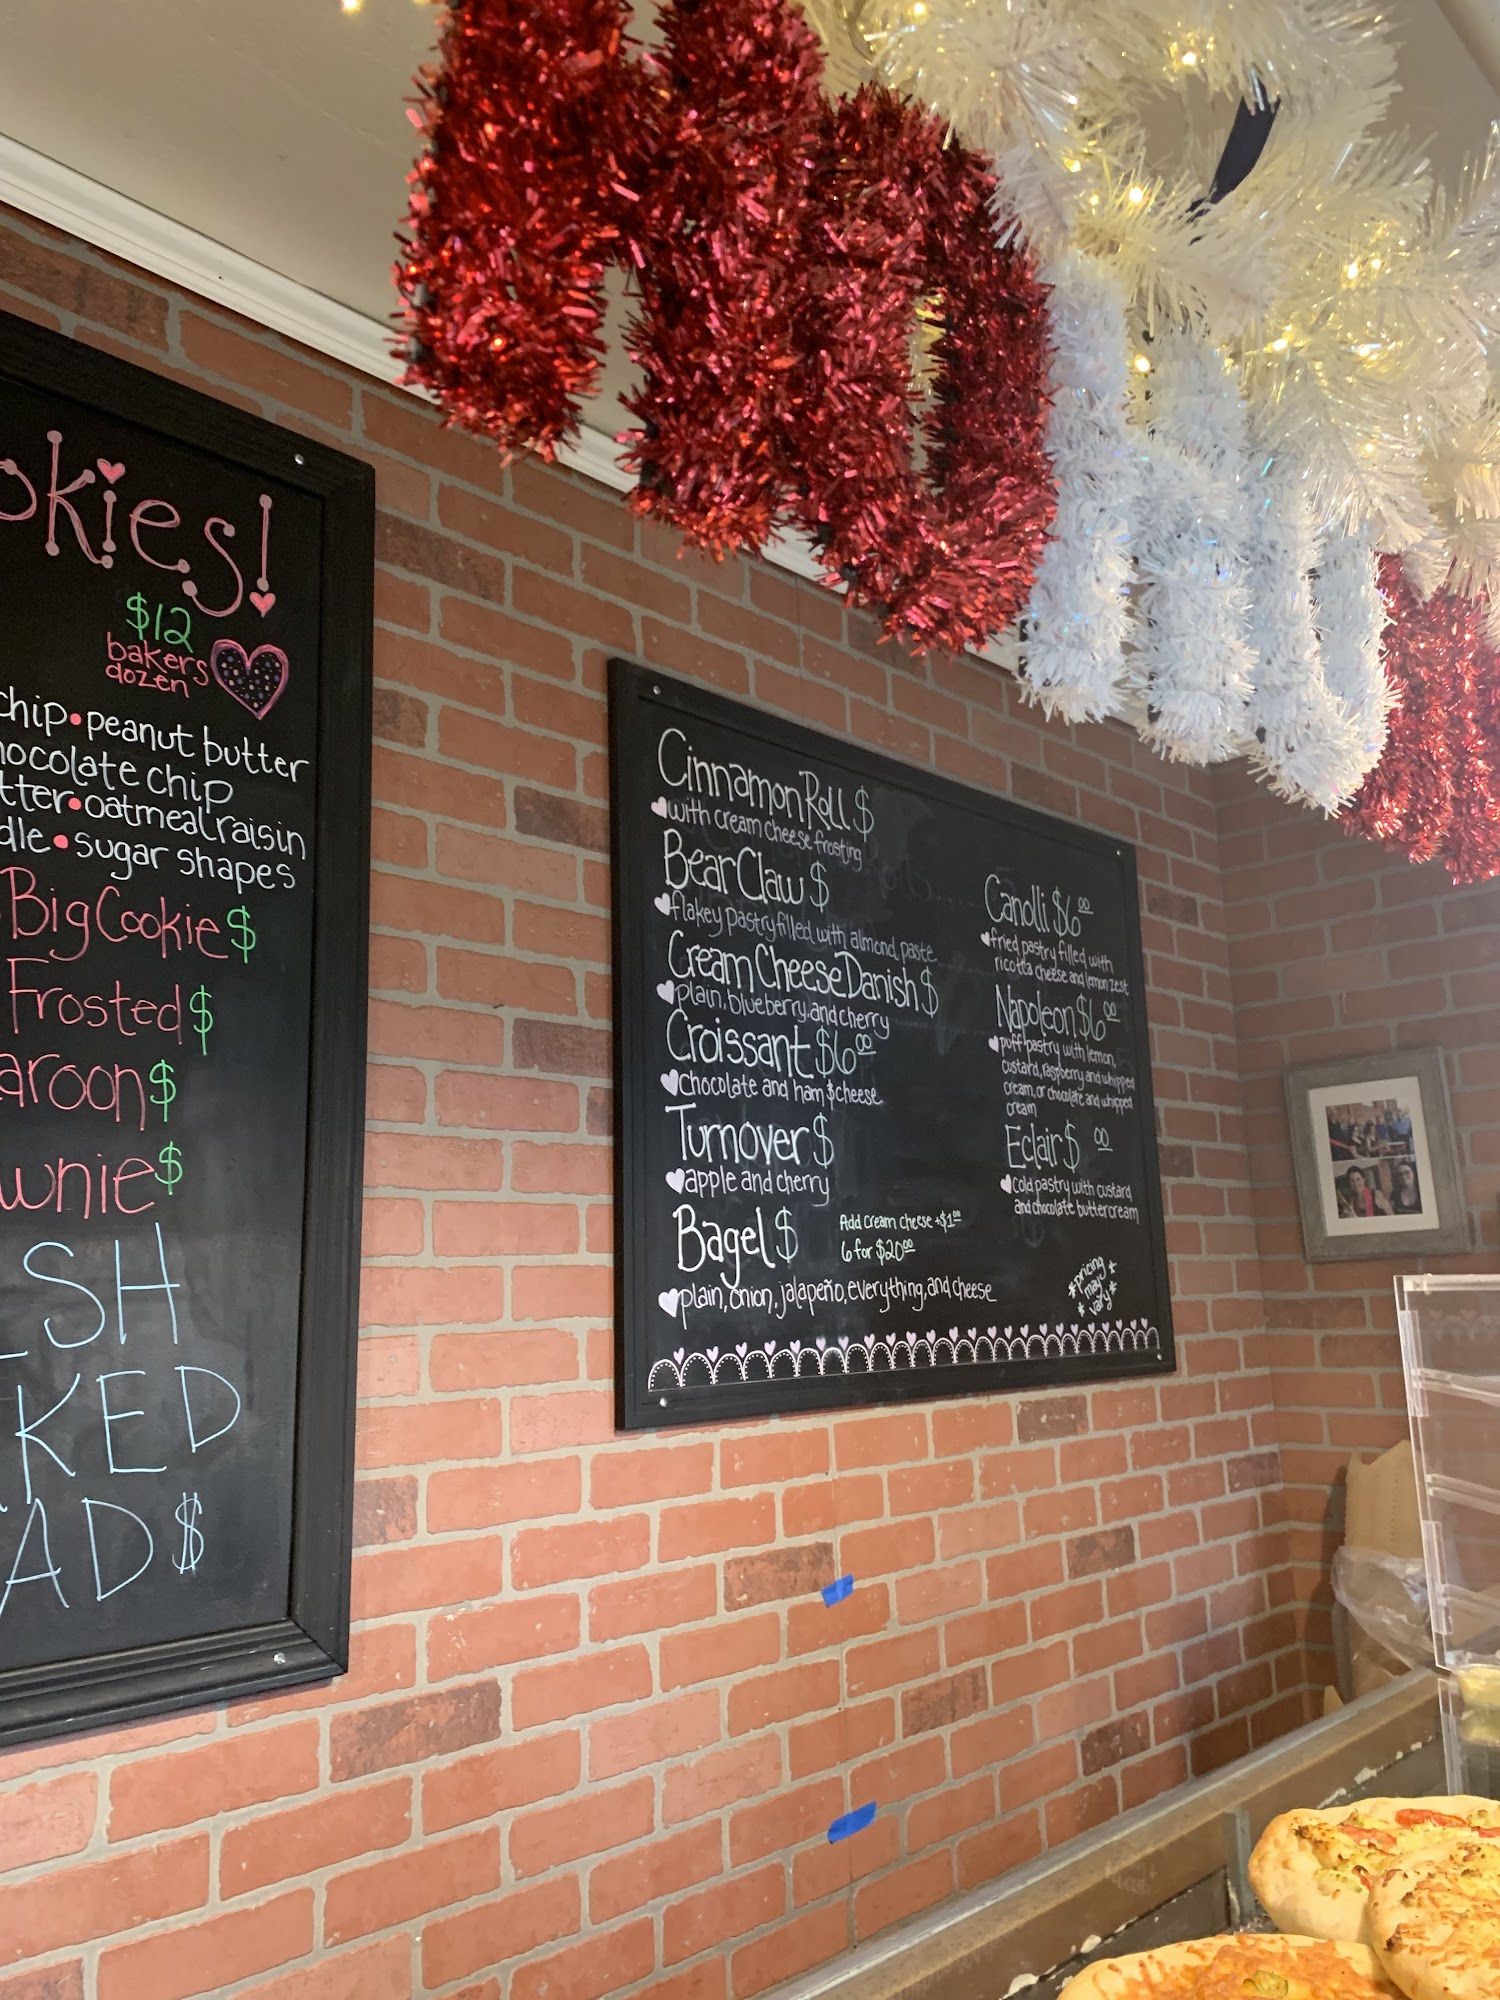 okies!
$12
bakers
dozen
chip•peanut butter
hocolate chip
tter•oatmeal raisin
dle•sugar shapes
Big Cookie $
Frosted $
aroon $
wnie $
SH
KED
AD $
Cinnamon Roll $
with cream cheese frosting
Bear Claw $
flakey pastry filled with almond paste
Cream Cheese Danish $
plain, blueberry, and cherry
Croissant $6.00
chocolate and ham $ cheese
Turnover $
apple and cherry
Bagel $
Add cream cheese +$1.00
6 for $20.00
plain, onion, jalapeño, everything, and cheese
Canolli $6.00
fried pastry filled with
ricotta cheese and lemon zest
Napoleon $6.00
puff pastry with lemon,
custard, raspberry and whipped
cream, or chocolate and whipped
cream
Eclair $ 00
cold pastry with custard
and chocolate buttercream
*pricing*
may
*vary*